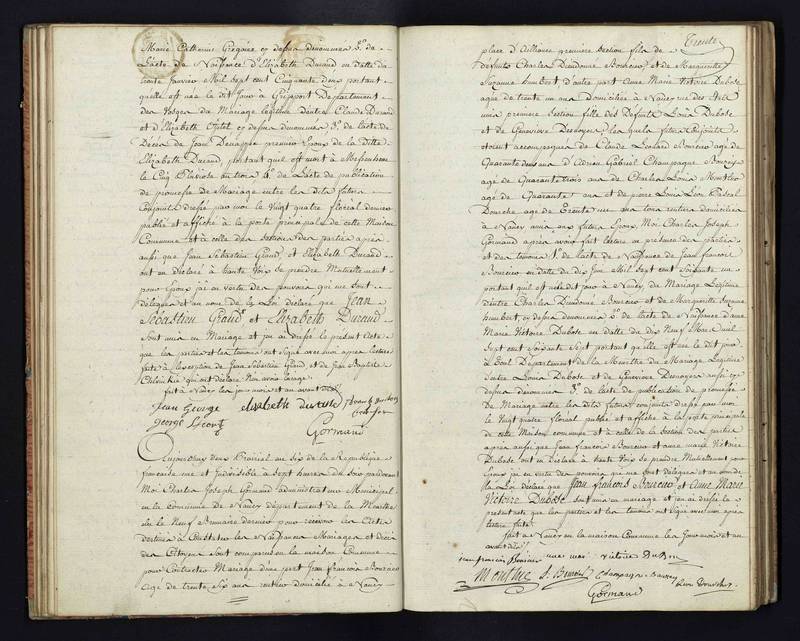 Marie Catherine Gregoire cy dessus denommés 3.° de
L'acte de Naissance d'Elizabeth Durand en datte du
trente Janvier Mil Sept cent Cinquante deux portant
quelle est née le dit Jour à Département
des Vosges du Mariage légitime d'entre Claude Durand
et d'Elizabeth cy dessus denommés 3.° de l'acte de
Décès de Jean premier Epoux de la ditte
Elizabeth Durand, portant quil est mort à
le Cinq Pluviose an trois 4.° de L'acte de publication
de promesse de Mariage entre les dits futurs
Conjoints dressé par moi le Vingt quatre floréal dernier
publié et affiché à la porte principale de cette Maison
Commune et à celle des sections des parties après
aussi que Jean Sébastien Grand, et Elizabeth Durand
ont eu déclaré à haute Voix se prendre Mutuellement
pour Epoux j'ai en vertu des pouvoirs qui me sont
délégués et au nom de la Loi déclaré que Jean
Sébastien Grand et Elizabeth Durand
sont unis en Mariage et j'ai dressé le présent acte
que les parties et les temoins ont signé avec moi après lecture
faite à l'exception de Jean Sebastien Grand et de Jean Baptiste
qui ont déclaré Non avoir l'usage
fait à Nancy les jour mois et an avant dits
Jean George elisabeth durand
George
Gormand
Aujourdhuy deux Prairial an Six de la République
française une et Indivisible à Sept heures du Soir pardevant
Moi Charles Joseph Gormand administrateur Municipal
en la commune de Nancy département de la Meurthe
élu le Neuf Brumaire dernier pour recevoir les Actes
destinés à Constater les Naissances Mariages et décès
des Citoyens sont comparus en la maison Commune
pour Contracter Mariage d'une part Jean francois Boursier
agé de trente Six ans rentier domicilié à Nancy
Trente
place d'Alliance première Section fils de
défunts Charles Dieudonné Boursier et de Marguerite
Suzanne humbert, d'autre part Anne Marie Victoire Dubose
agée de trente un ans domiciliée à Nancy rue des
une première Section fille des Défunts Louis Dubose
et de Genevieve Desnoyers; les quels futurs Conjoints
étoient accompagnés de Claude Léonard Boursier agé de
Quarante deux ans d'Adrien Gabriel Champagne Boursier
agé de Quarante trois ans de Charles Louis Monthier
agé de Quarante ans et de pierre Louis Léon Pascal
Dourche agé de Trente un ans tous rentiers domiciliés
à Nancy amis aux futurs Epoux, Moi Charles Joseph
Gormand après avoir fait lecture en présence des parties
et des temoins 1.° de l'acte de Naissance de Jean francois
Boursier en datte du dix Juin Mil Sept cent Soixante un
portant quil est né dit jour à Nancy du Mariage Legitime
d'entre Charles Dieudonné Boursier et de Marguerite Suzanne
humbert, cy dessus denommés 2.° de l'acte de Naissance d'anne
Marie Victoire Dubose en datte du dix Neuf Mai Mil
Sept cent Soixante Sept portant qu'elle est née le dit jour
à Toul Département de la Meurthe du Mariage Legitime
d'entre Louis Dubose et de Genevieve Desnoyers aussi cy
dessus denommés 3.° de l'acte de publication de promesse
de Mariage entre les dits futurs conjoints dressé par moi
le Vingt quatre floréal publié et affiché à la porte principale
de cette Maison commune et à celle de la Section des parties
après aussi que Jean françois Boursier et anne marie Victoire
Dubose ont eu déclaré à haute Voix se prendre Mutuellement pour
Epoux j'ai en vertu des pouvoirs qui me sont délégués et au nom de
la Loi déclaré que Jean françois Boursier et Anne Marie
Victoire Dubose sont unis en mariage et j'ai dressé le
présent acte que les parties et les temoins ont signé avec moi après
lecture faite.
fait à Nancy en la maison Commune les Jour mois et an
avant dits
jean françois Boursier anne marie victoire Dubose
Monthier Champagne Boursier
Léon Dourche
Gormand